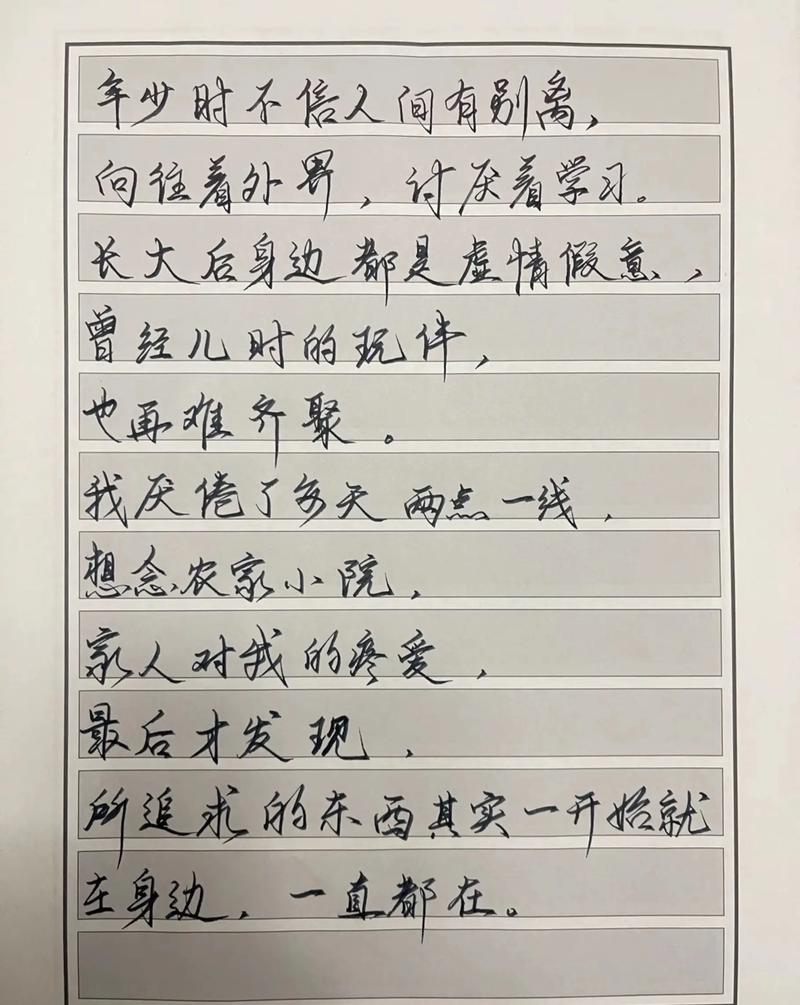 年少时不信人间有别离,
向往着外界,讨厌着学习。
长大后身边都是虚情假意,
曾经儿时的玩伴,
也再难齐聚。
我厌倦了每天两点一线,
想念农家小院,
家人对我的疼爱,
最后才发现,
所追求的东西其实一开始就
在身边,一直都在。